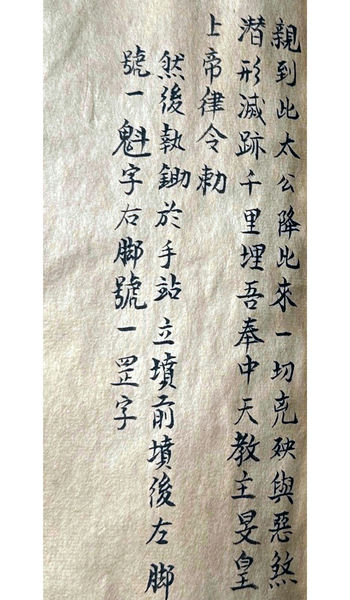 親到此太公降此來一切克殃與惡煞
潛形滅跡千里埋吾奉中天教主旻皇
上帝律令勅
然後執鋤於手站立墳前墳後左脚
號一魁字右脚號一罡字